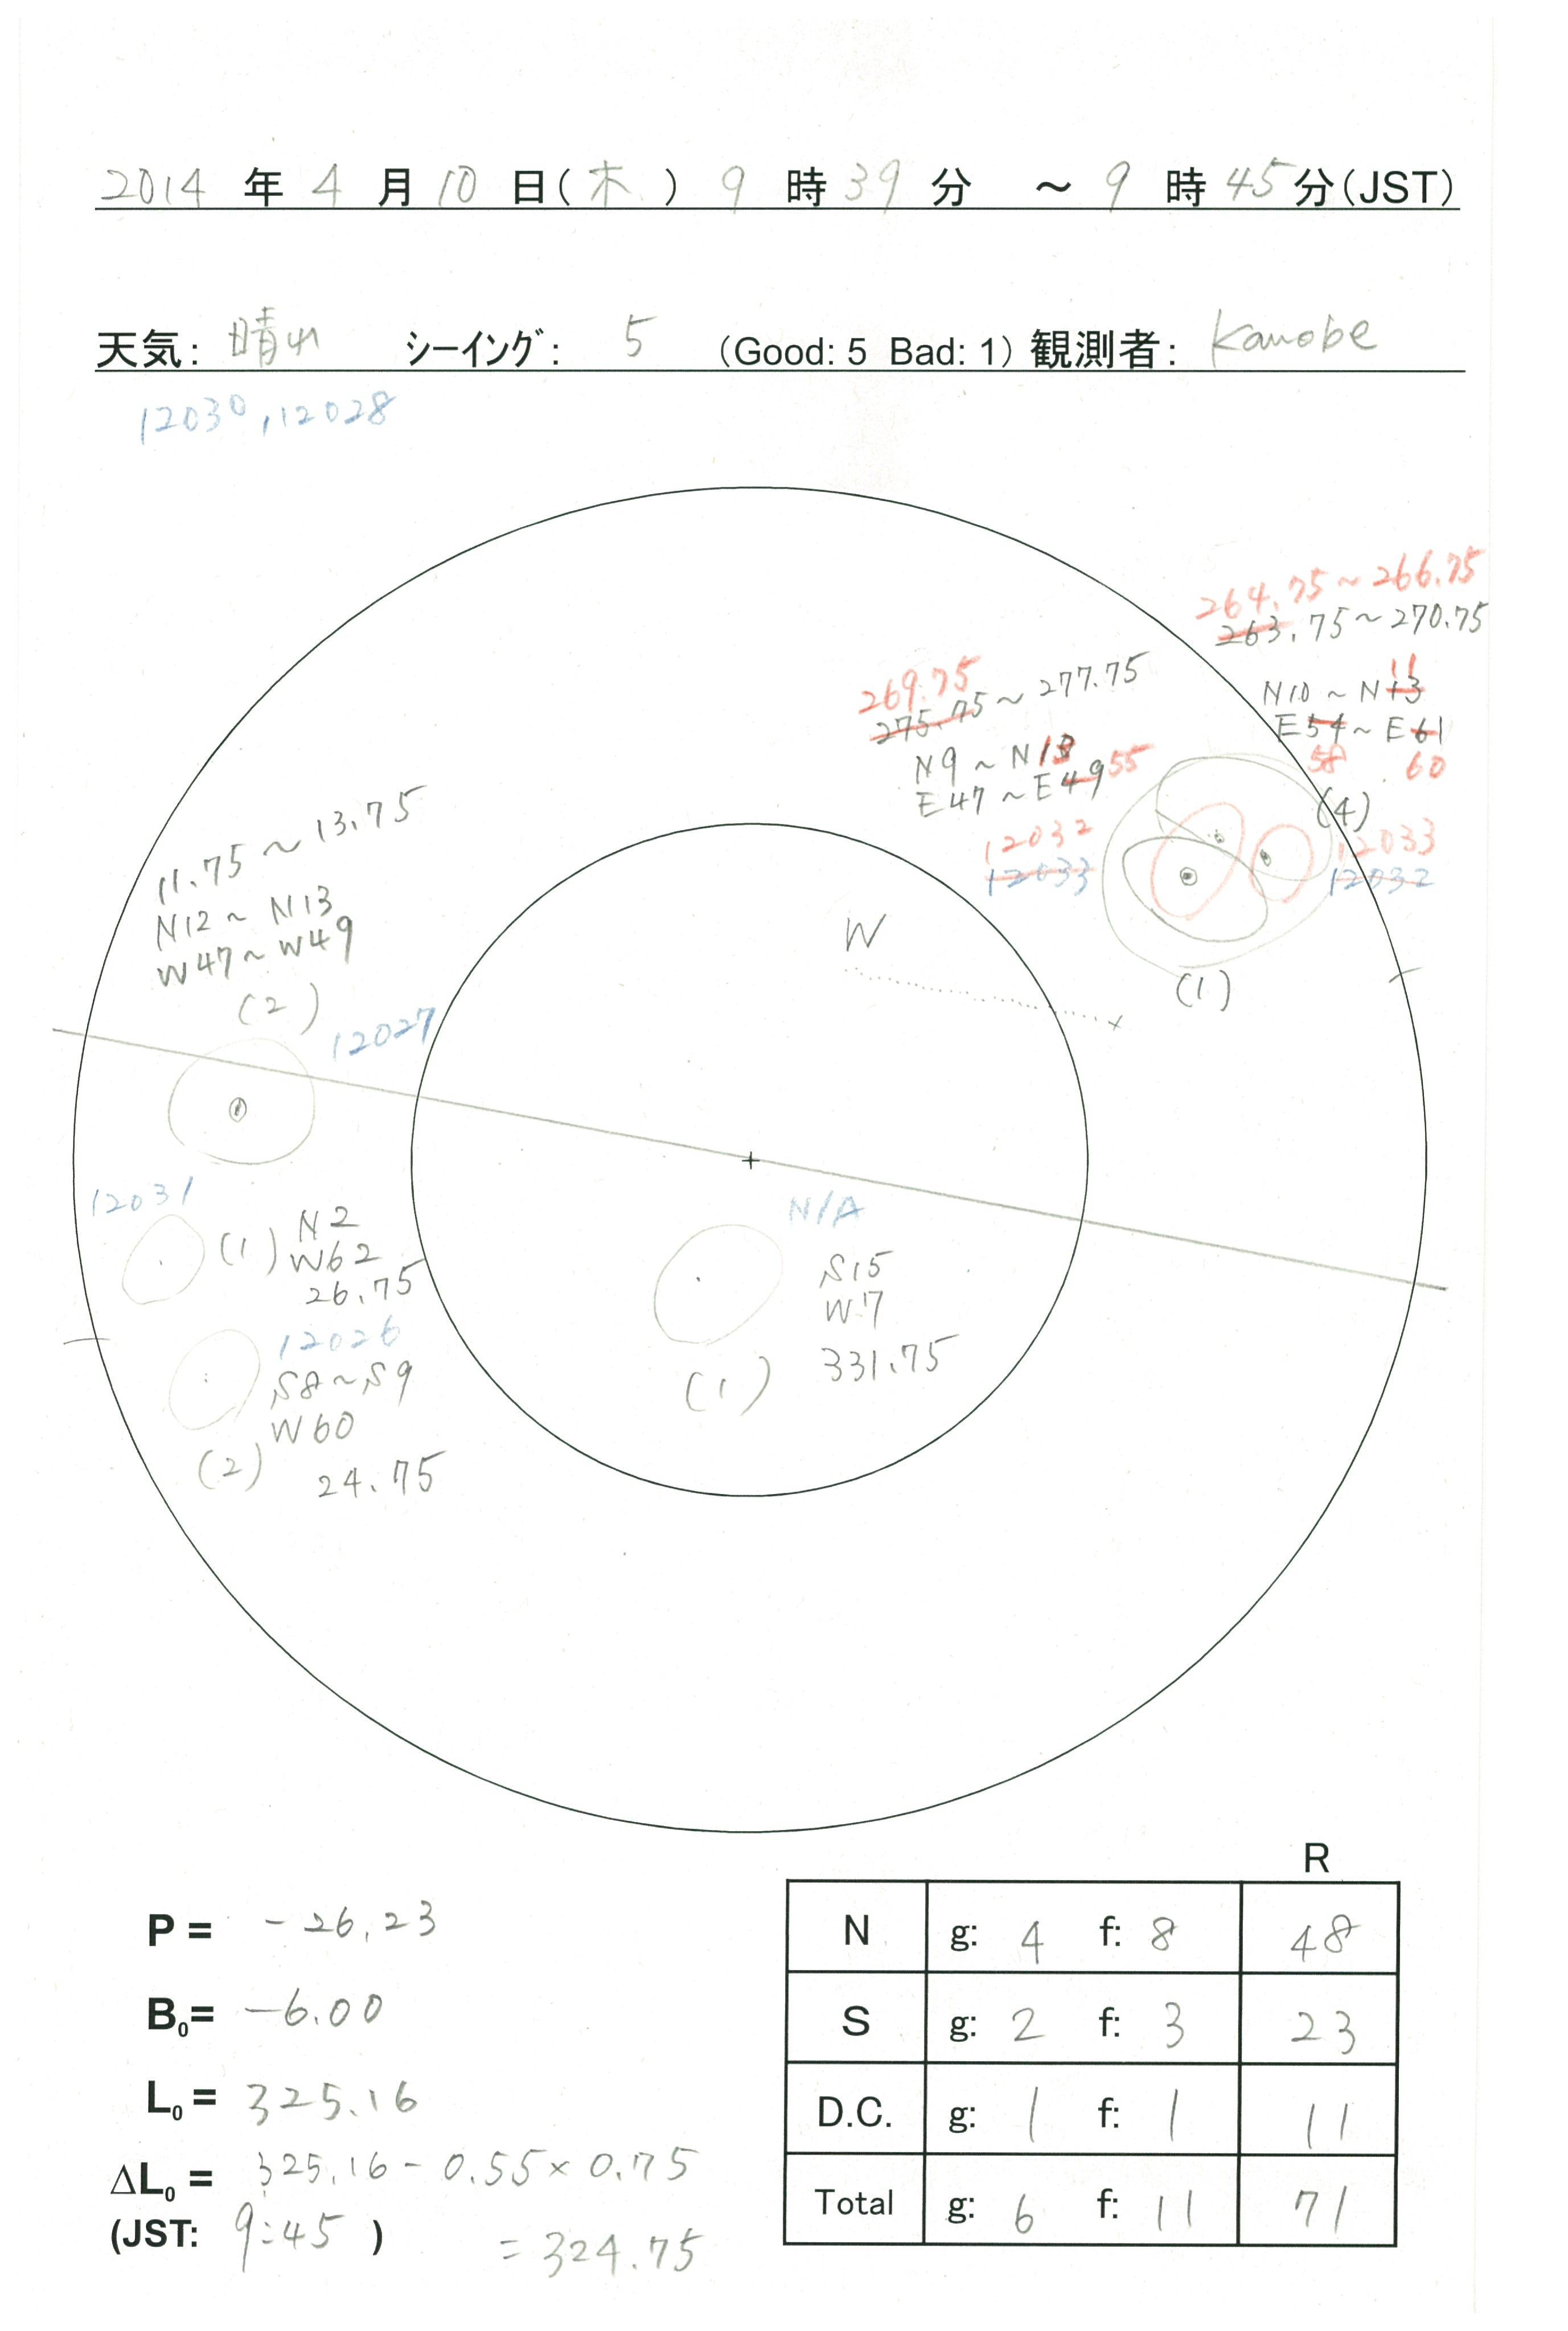 2014 年 4 月 10 日(木) 9 時 39 分 ～ 9 時 45 分(JST)
天気: 晴れ シーイング: 5 (Good: 5 Bad: 1) 観測者: Kamobe
12030, 12028
264.75～266.75
263.75～270.75
N10～N13 11
E54～E61
58 60
(4)
12033
12032
269.75
275.75～277.75
N9～N13
E47～E49 55
12032
12033
(1)
W
11.75～13.75
N12～N13
W47～W49
(2)
12027
12031
(1) N2
W62
26.75
12026
S8～S9
W60
(2)
24.75
N/A
S15
W7
(1) 331.75
R
P = -26.23
B0= -6.00
L0= 325.16
ΔL0= 325.16 - 0.55×0.75
(JST: 9:45) = 324.75
N g: 4 f: 8 48
S g: 2 f: 3 23
D.C. g: 1 f: 1 11
Total g: 6 f: 11 71